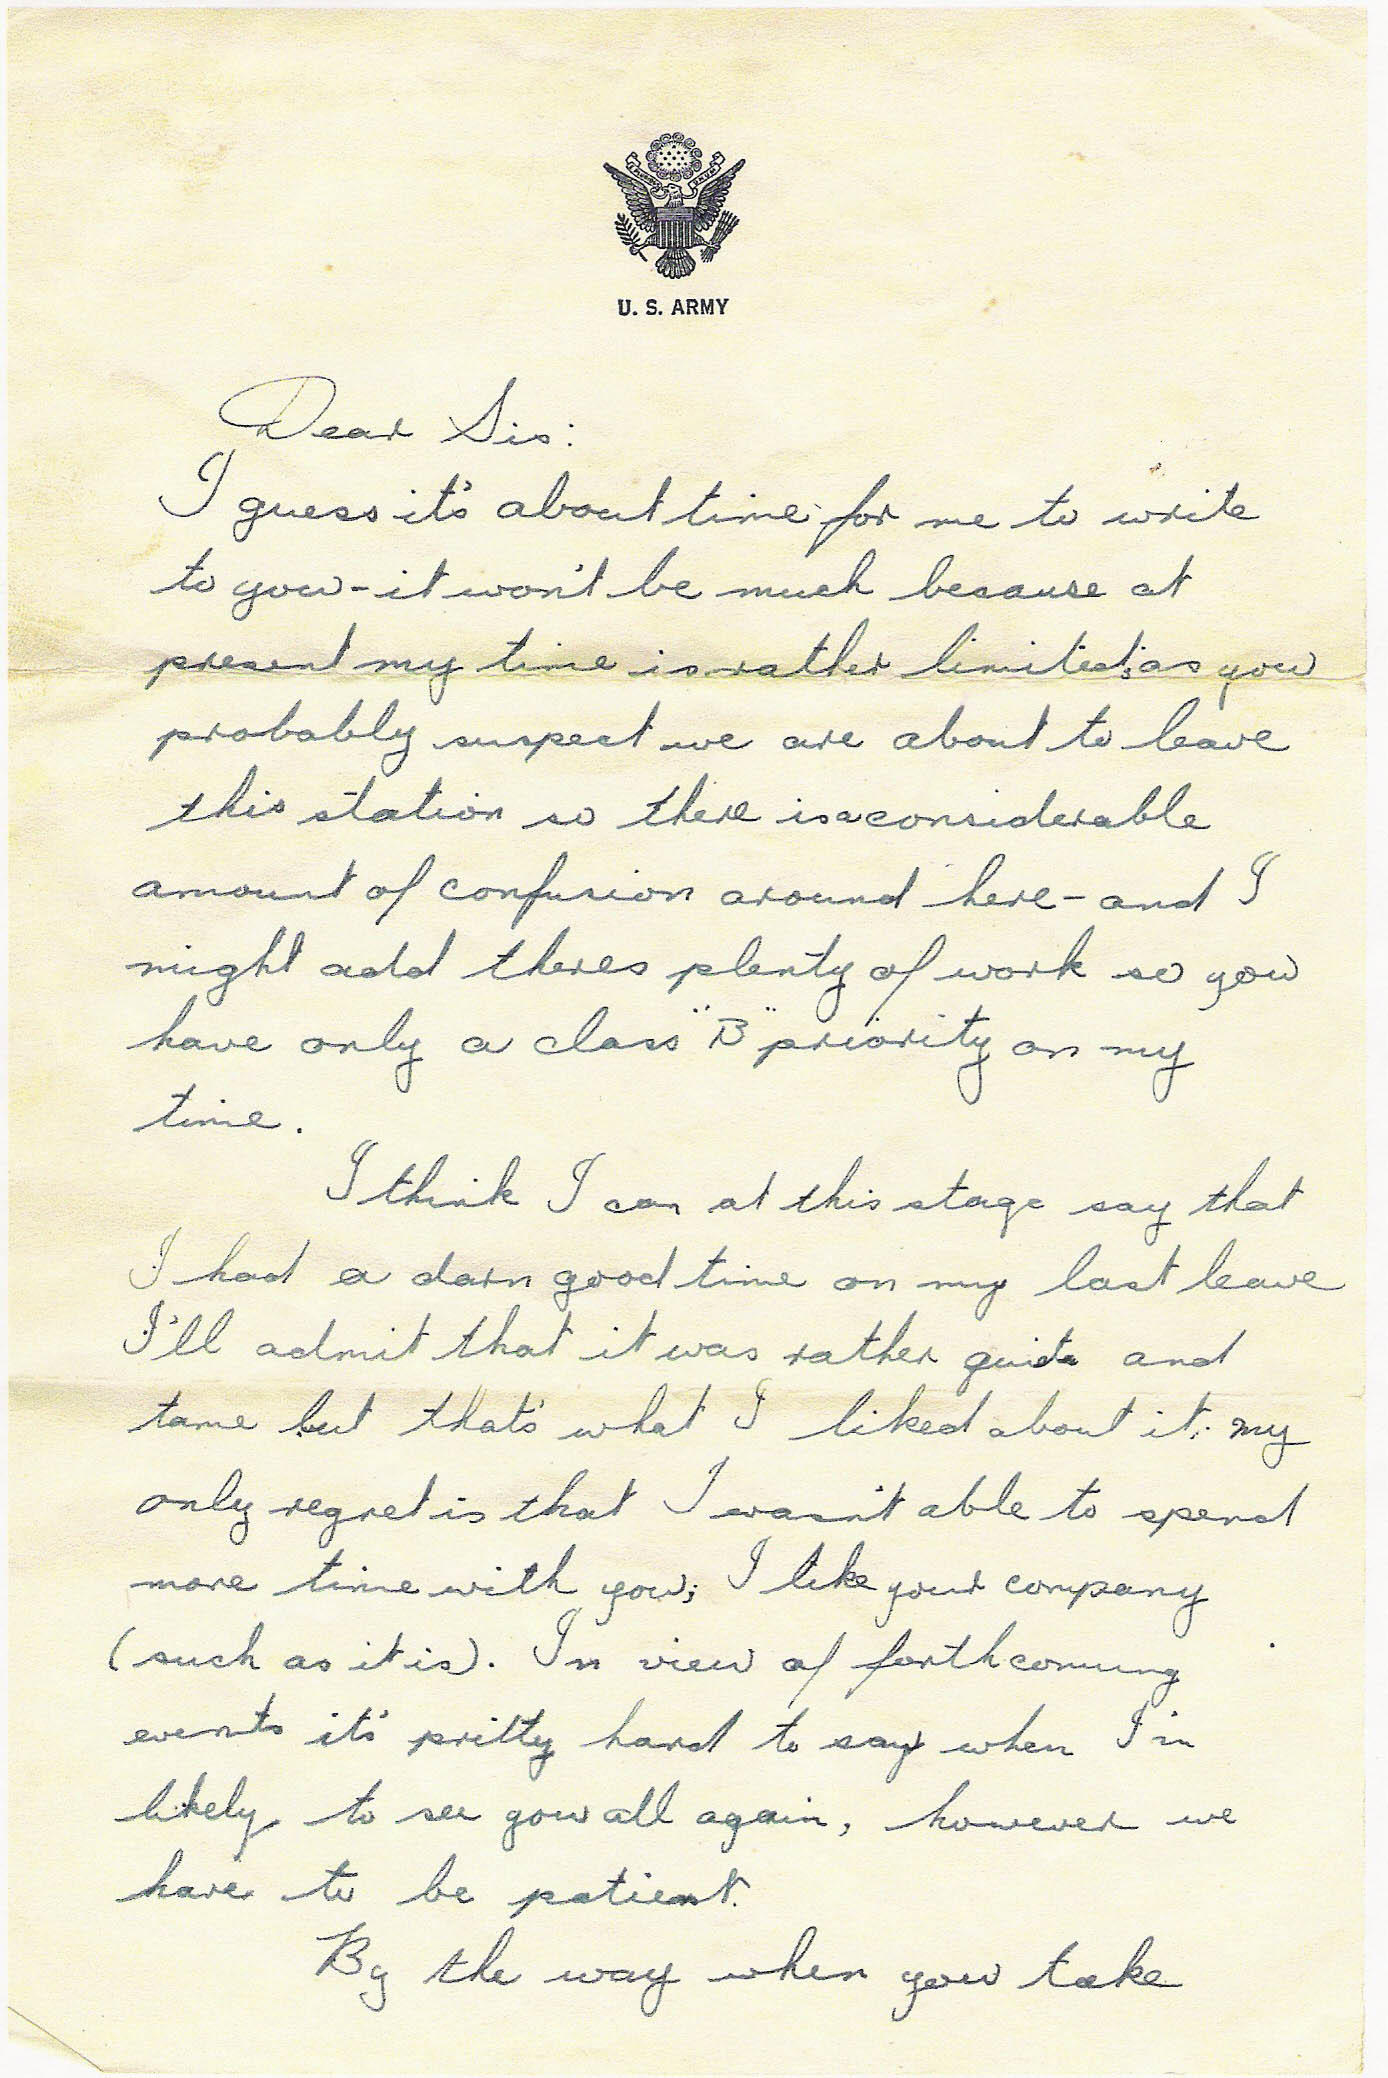 U. S. ARMY
Dear Sis:
I guess it's about time for me to write
to you - it won't be much because at
present my time is rather limited; as you
probably suspect we are about to leave
this station so there is a considerable
amount of confusion around here - and I
might add theres plenty of work so you
have only a class "B" priority on my
time.
I think I can at this stage say that
I had a darn good time on my last leave
I'll admit that it was rather and
tame but that's what I liked about it; my
only regret is that I wasn't able to spend
more time with you; I like your company
(such as it is). In view of forthcoming
events it's pritty hard to say when I'm
likely to see you all again, however we
have to be patient.
By the way when you take